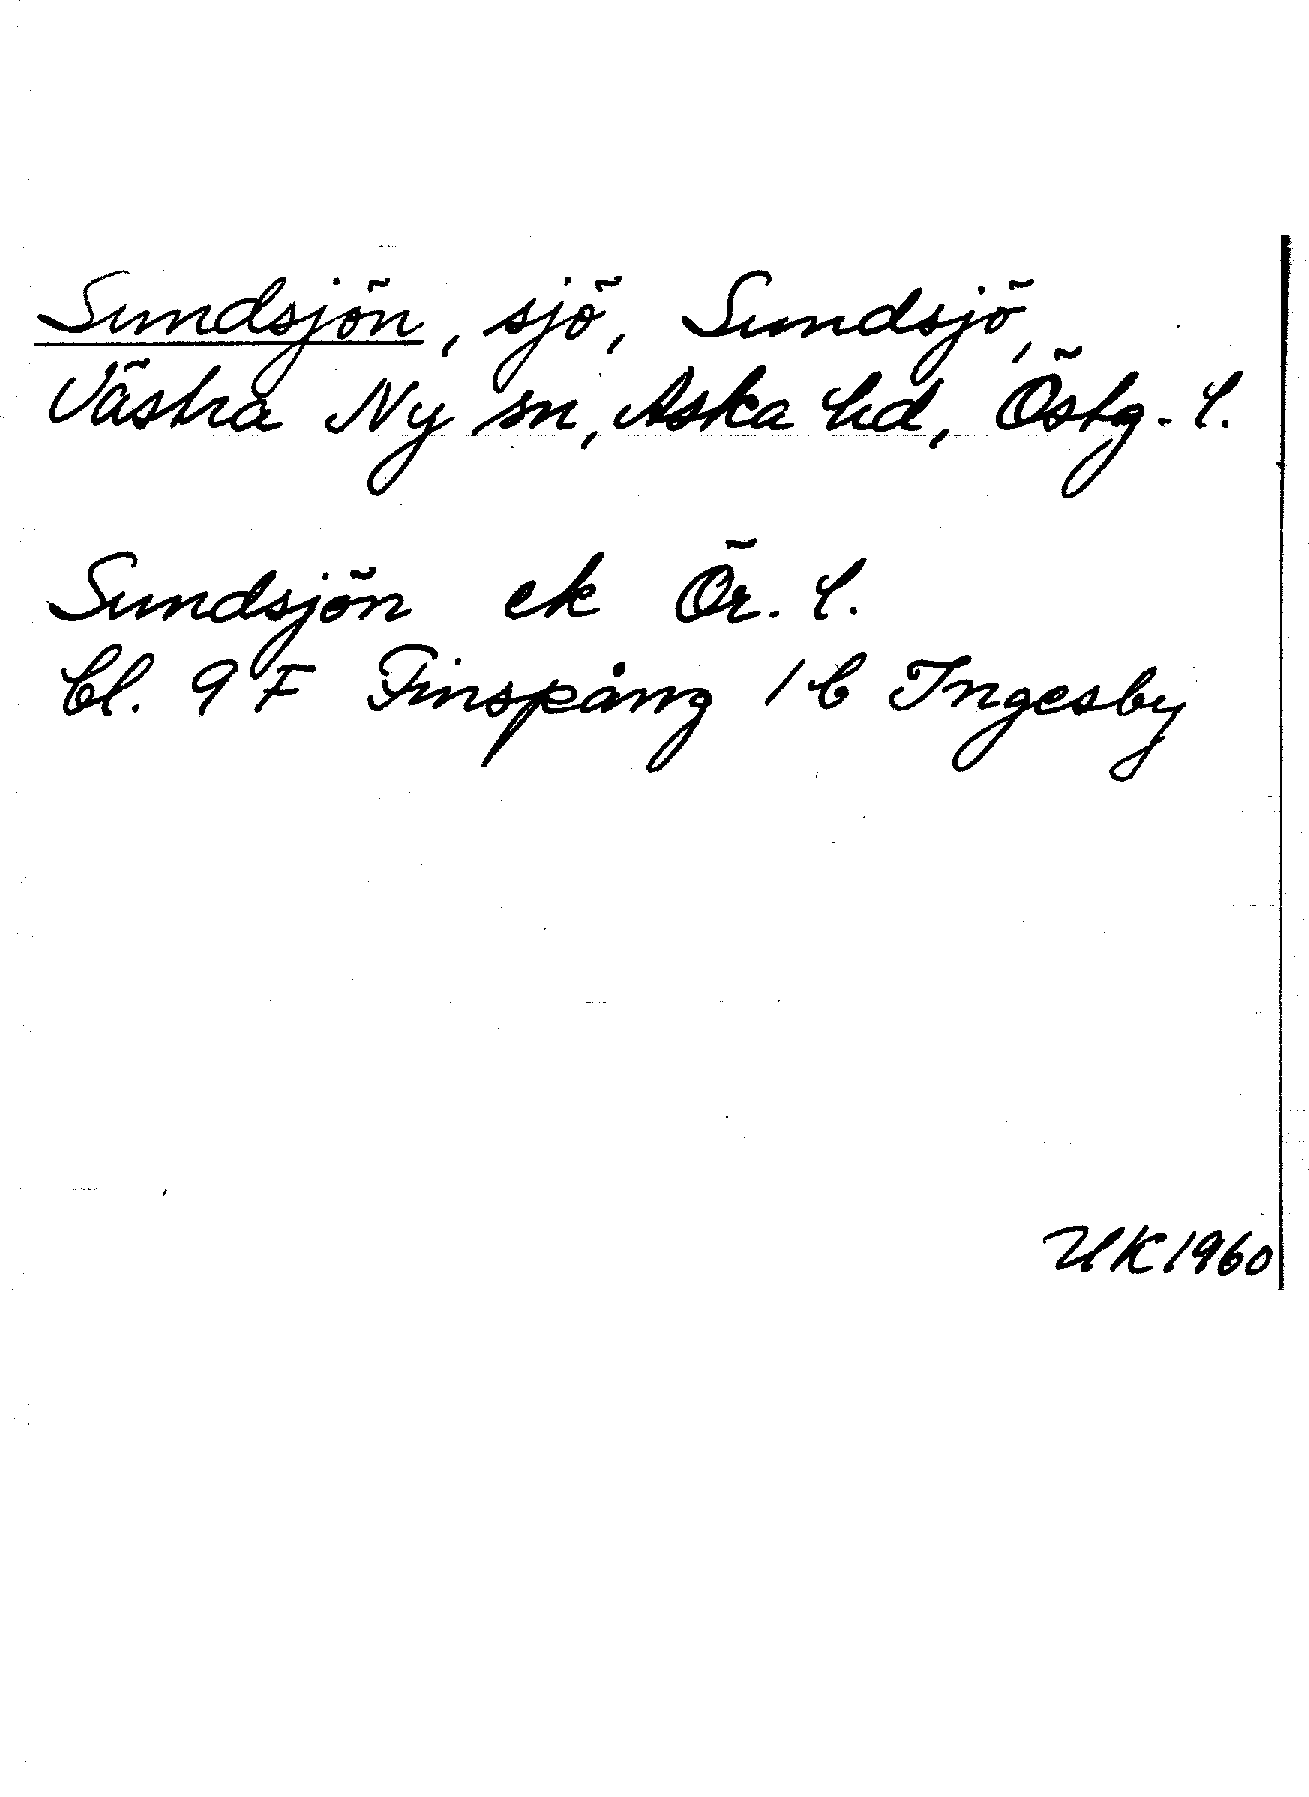 Sundsjön, sjö, Sundsjö,
Västra Ny sn, Aska hd, Östg. l.

Sundsjön ek Ör. l.
bl. 9F Finspång 1 b Ingesby

UK 1960